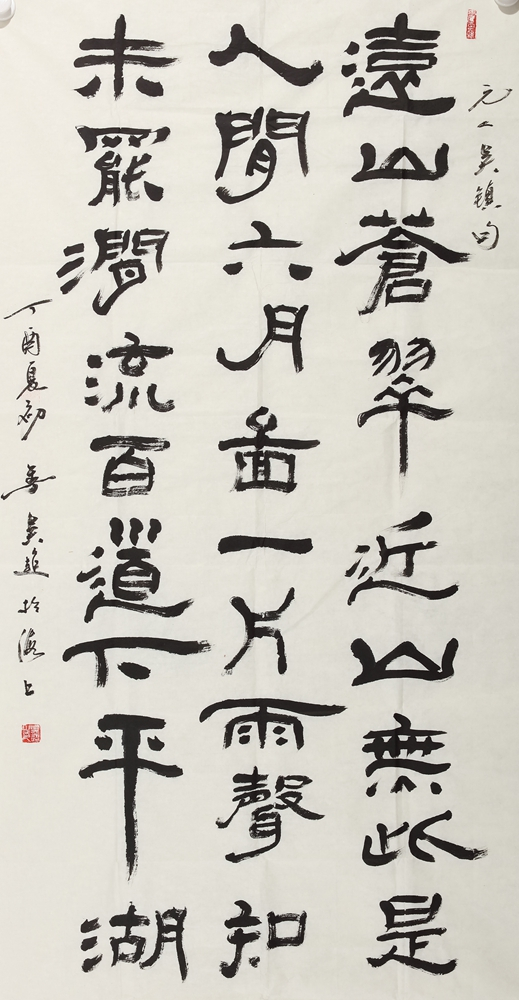 元人吴镇句
遠山蒼翠近山無此是
人間六月啚一片雨聲知
未罷澗流百道下平湖
丁酉夏初 吴 於海上